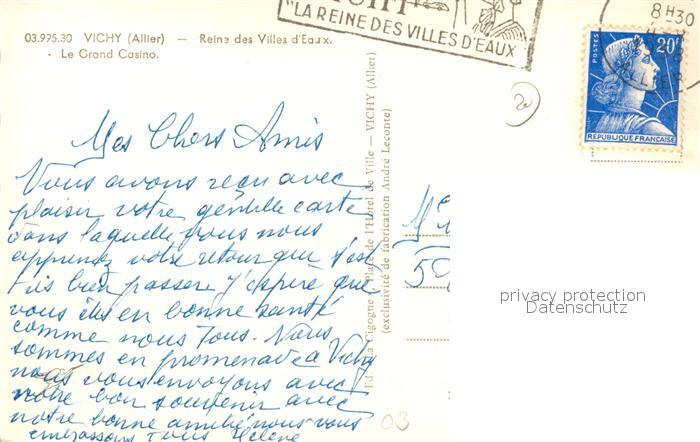 03.995.30 VICHY (Allier) — Reine des Villes d'Eaux.
Le Grand Casino.
"LA REINE DES VILLES D'EAUX"
8H30
ALLIER
POSTES
20F
REPUBLIQUE FRANÇAISE
Mes Chers Amis
Vous avons reçu avec
plaisir votre gentille carte
dans laquelle vous nous
apprenez votre retour que s'est
très bien passer J'espère que
vous êtes en bonne santé
comme nous tous. Nous
sommes en promenade a Vichy
nous vous envoyons avec
notre bon souvenir avec
notre bonne amitié nous vous
embrassons Tous Hélène
La Cigogne Place de l'Hôtel de Ville — VICHY (Allier)
(exclusivité de fabrication André Leconte)
50
03
privacy protection
Datenschutz